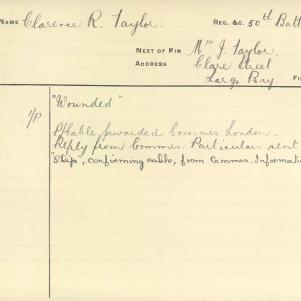 NAME Clarence R. Taylor. REG. &C. 50th Batt
NEXT OF KIN Mrs J. Taylor.
ADDRESS Clare Street
Largs Bay.
"Wounded"
Cable forwarded Commis London.
Reply from Commis. Particulars sent
"Slip", confirming cable, from Commis. Informati